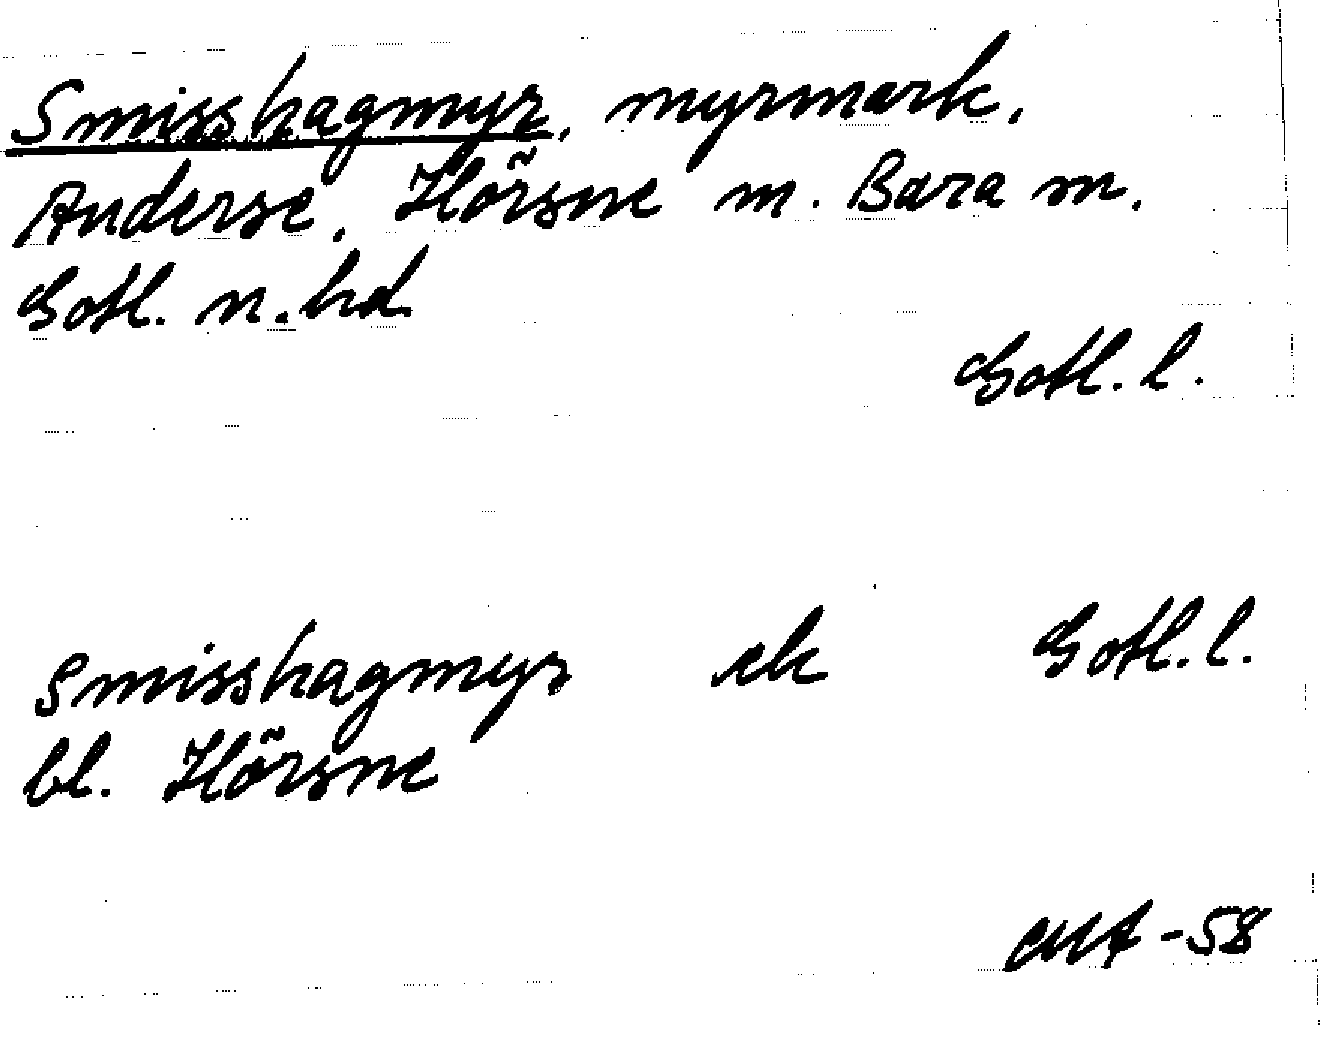 Smisshagmyr, myrmark,
Anderse, Hörsne m. Bara sn.
Gotl. n. hd
Gotl. l.
Smisshagmyr ek Gotl. l.
bl. Hörsne
-58